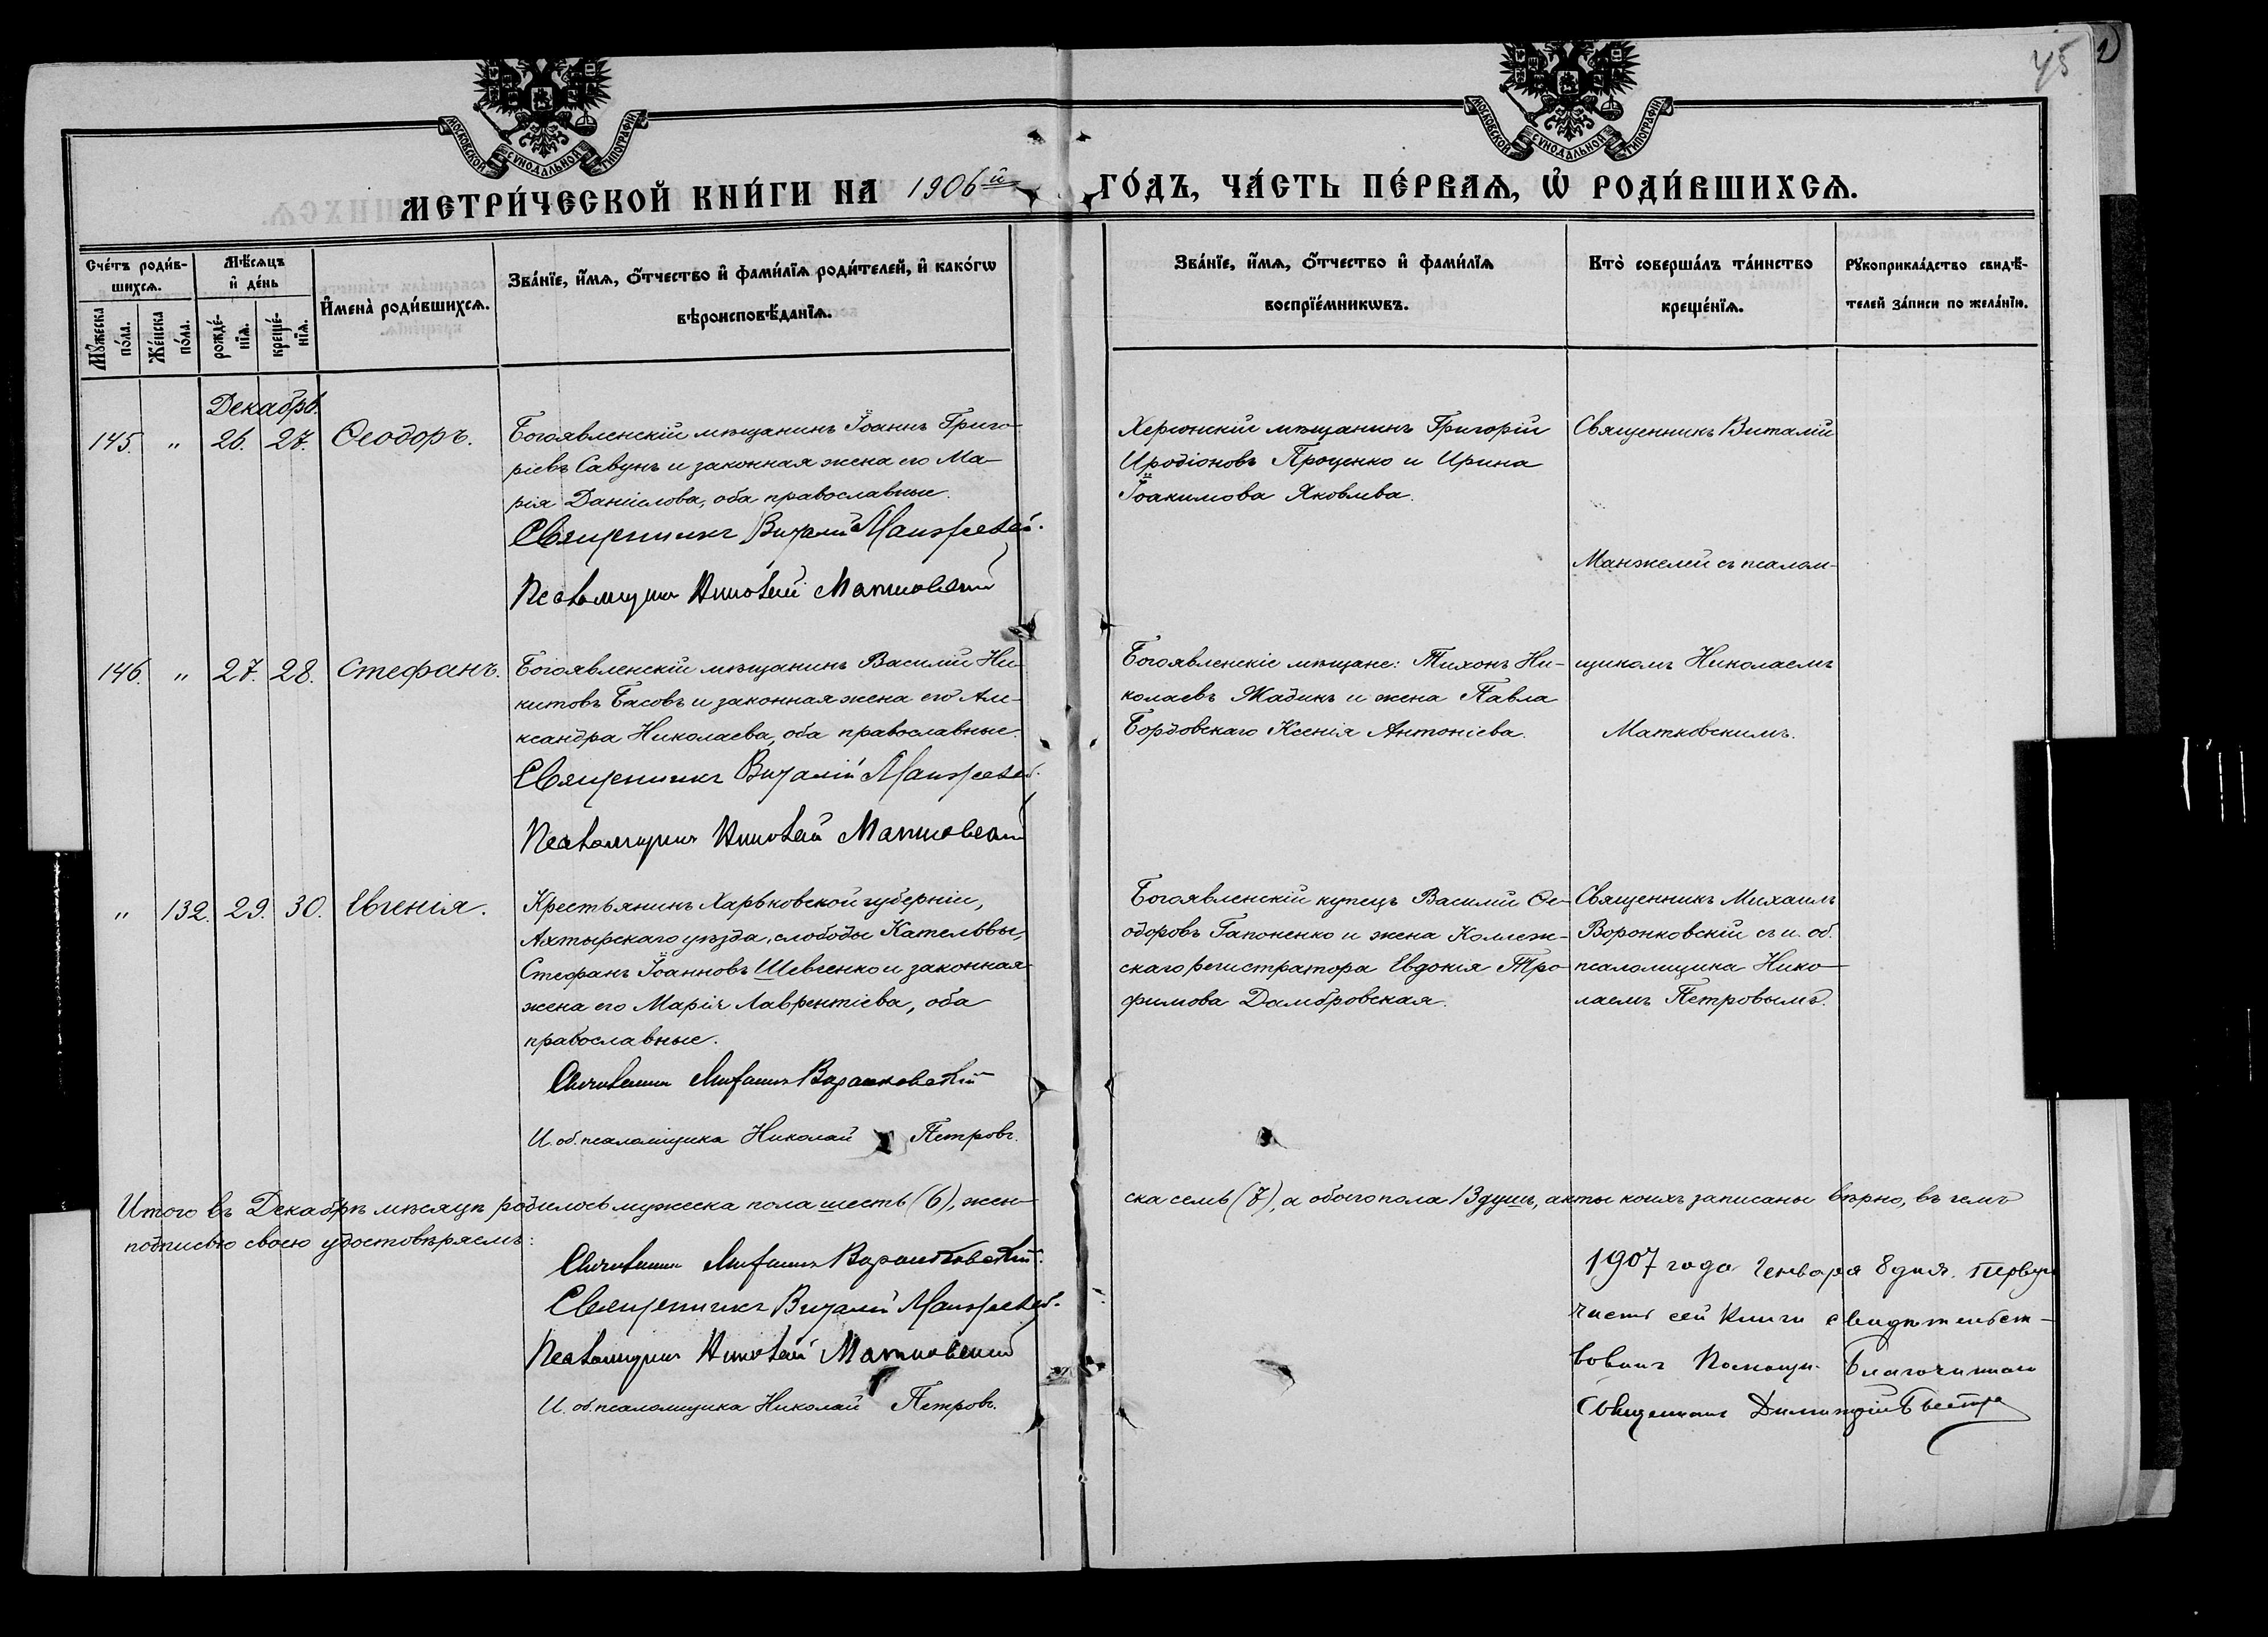 45
1)
МОСКОВСКОЙ СѴНОДАЛЬНОЙ ТИПОГРАФІИ
МОСКОВСКОЙ СѴНОДАЛЬНОЙ ТИПОГРАФІИ
МЕТРИ́ЧЕСКОЙ КНИ́ГИ НА 1906й ГО́ДЪ, ЧА́СТЬ ПЕ́РВАѦ, Ѡ҆ РОДИ́ВШИХСѦ.
Сче́тъ роди́в-
шихсѧ.
Мꙋ́жеска
по́ла.
Же́нска
по́ла.
Мѣ́сѧцъ
и҆ де́нь
рожде́-
нїѧ.
креще́-
нїѧ.
И҆мена̀ роди́вшихсѧ.
Зва́нїе, и҆́мѧ, ѻ҆́тчество и҆ фами́лїѧ роди́телей, и҆ како́гѡ
вѣроисповѣ́данїѧ.
Зва́нїе, и҆́мѧ, ѻ҆́тчество и҆ фами́лїѧ
воспрїе́мникѡвъ.
Кто̀ соверша́лъ та́инство
креще́нїѧ.
Рꙋкоприкла́дство свидѣ́-
телей за́писи по жела́нїю.
Декабрь.
145. " 26. 27. Ѳеодоръ.
Богоявленскій мѣщанинъ Іоаннъ Григо-
ріевъ Савунъ и законная жена его Ма-
рія Даніилова, оба православные.
Священникъ Виталій Манжелей.
Псаломщикъ Николай Матковскій
Херсонскій мѣщанинъ Григорій
Иродіоновъ Проценко и Ирина
Іоакимова Яковлева.
Священникъ Виталій
Манжелей съ псалом-
146. " 27. 28. Стефанъ.
Богоявленскій мѣщанинъ Василій Ни-
китовъ Басовъ и законная жена его Але-
ксандра Николаева, оба православные.
Священникъ Виталій Манжелей.
Псаломщикъ Николай Матковскій
Богоявленскіе мѣщане: Тихонъ Ни-
колаевъ Жадикъ и жена Павла
Бордовскаго Ксенія Антоніева.
щикомъ Николаемъ
Матковскимъ.
" 132. 29. 30. Евгенія.
Крестьянинъ Харьковской губерніи,
Ахтырскаго уѣзда, слободы Кательвы,
Стефанъ Іоанновъ Шевченко и законная
жена его Марія Лаврентіева, оба
православные.
Священникъ Михаилъ Воронковскій
И. об. псаломщика Николай Петровъ.
Богоявленскій купецъ Василій Ѳе-
одоровъ Гапоненко и жена Коллеж-
скаго регистратора Евдокія Тро-
фимова Домбровская.
Священникъ Михаилъ
Воронковскій съ и. об.
псаломщика Нико-
лаемъ Петровымъ.
Итого въ Декабрѣ мѣсяцѣ родилось мужеска пола шесть (6), жен-
ска семь (7), а обоего пола 13 душъ, акты коихъ записаны вѣрно, въ чемъ
подписью своею удостовѣряемъ:
Священникъ Михаилъ Воронковскій.
Священникъ Виталій Манжелей.
Псаломщикъ Николай Матковскій
И. об. псаломщика Николай Петровъ.
1907 года Генваря 8 дня. Первую
часть сей книги свидѣтельст-
вовалъ Помощн. Благочиннаго
Священникъ Димитрій